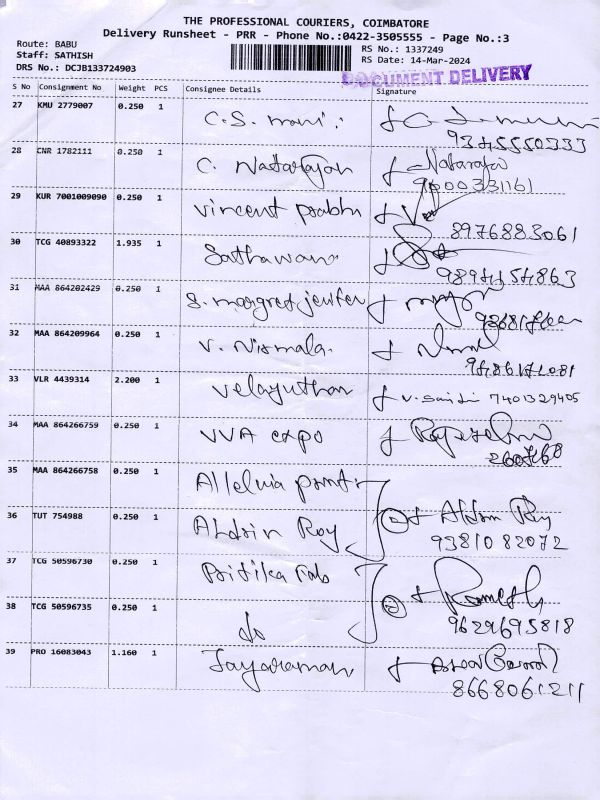 THE PROFESSIONAL COURIERS, COIMBATORE
Delivery Runsheet - PRR - Phone No.:0422-3505555 - Page No.:3
Route: BABU
Staff: SATHISH
DRS No.: DCJB133724903
RS No.: 1337249
RS Date: 14-Mar-2024
DOCUMENT DELIVERY
S No Consignment No Weight PCS Consignee Details Signature
27 KMU 2779007 0.250 1 C.S. mani
9345550333
28 CNR 1782111 0.250 1 C. Natarajan Nataraja
9600331161
29 KUR 7001009090 0.250 1 Vincent prabhu
8976883061
30 TCG 40893322 1.935 1 Sathawana
9894154863
31 MAA 864202429 0.250 1 S. margret jenifer
32 MAA 864209964 0.250 1 V. Nirmala.
33 VLR 4439314 2.200 1 Velayuthan V. 7401329405
34 MAA 864266759 0.250 1 VVA expo
35 MAA 864266758 0.250 1 Alleluia
36 TUT 754988 0.250 1 Aldrin Roy 2 Aldrin Roy
9381082072
37 TCG 50596730 0.250 1 Pritika Fab
38 TCG 50596735 0.250 1 do 2 Ramesh
9629695818
39 PRO 16083043 1.160 1 Jayaraman
8668061211